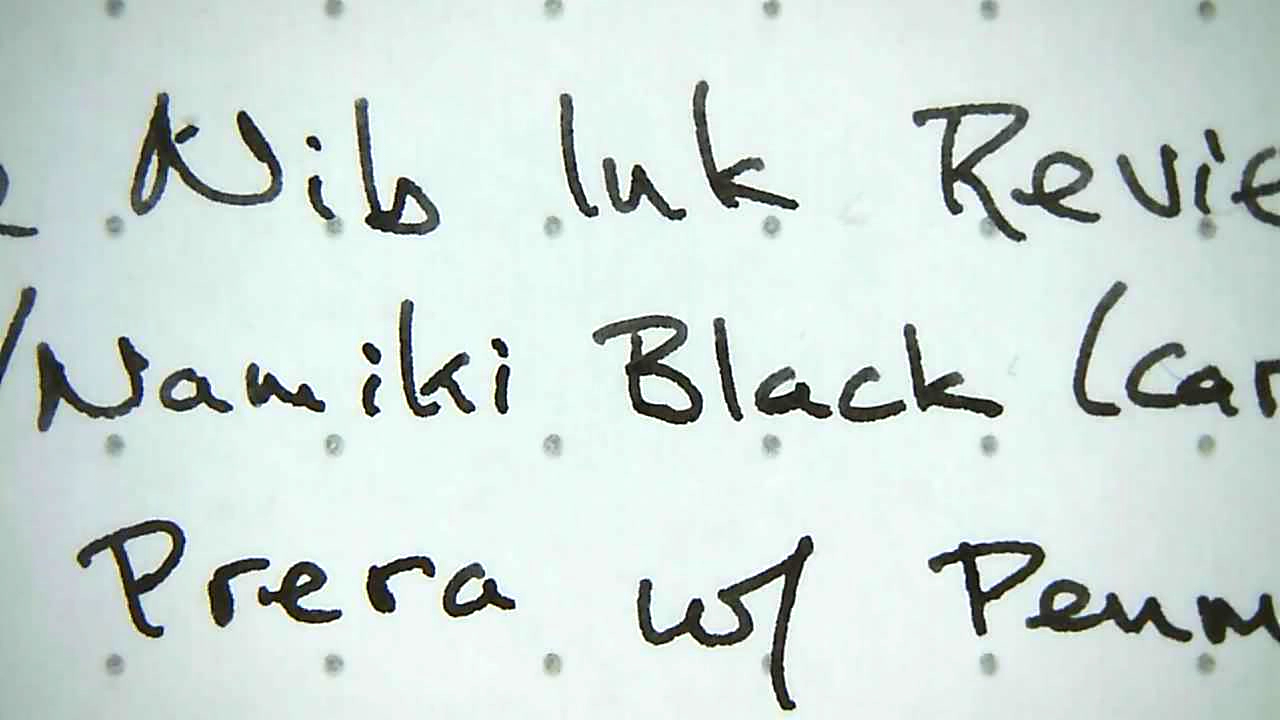 Nib Ink Revie
/Namiki Black (Car
Prera w/ Penm